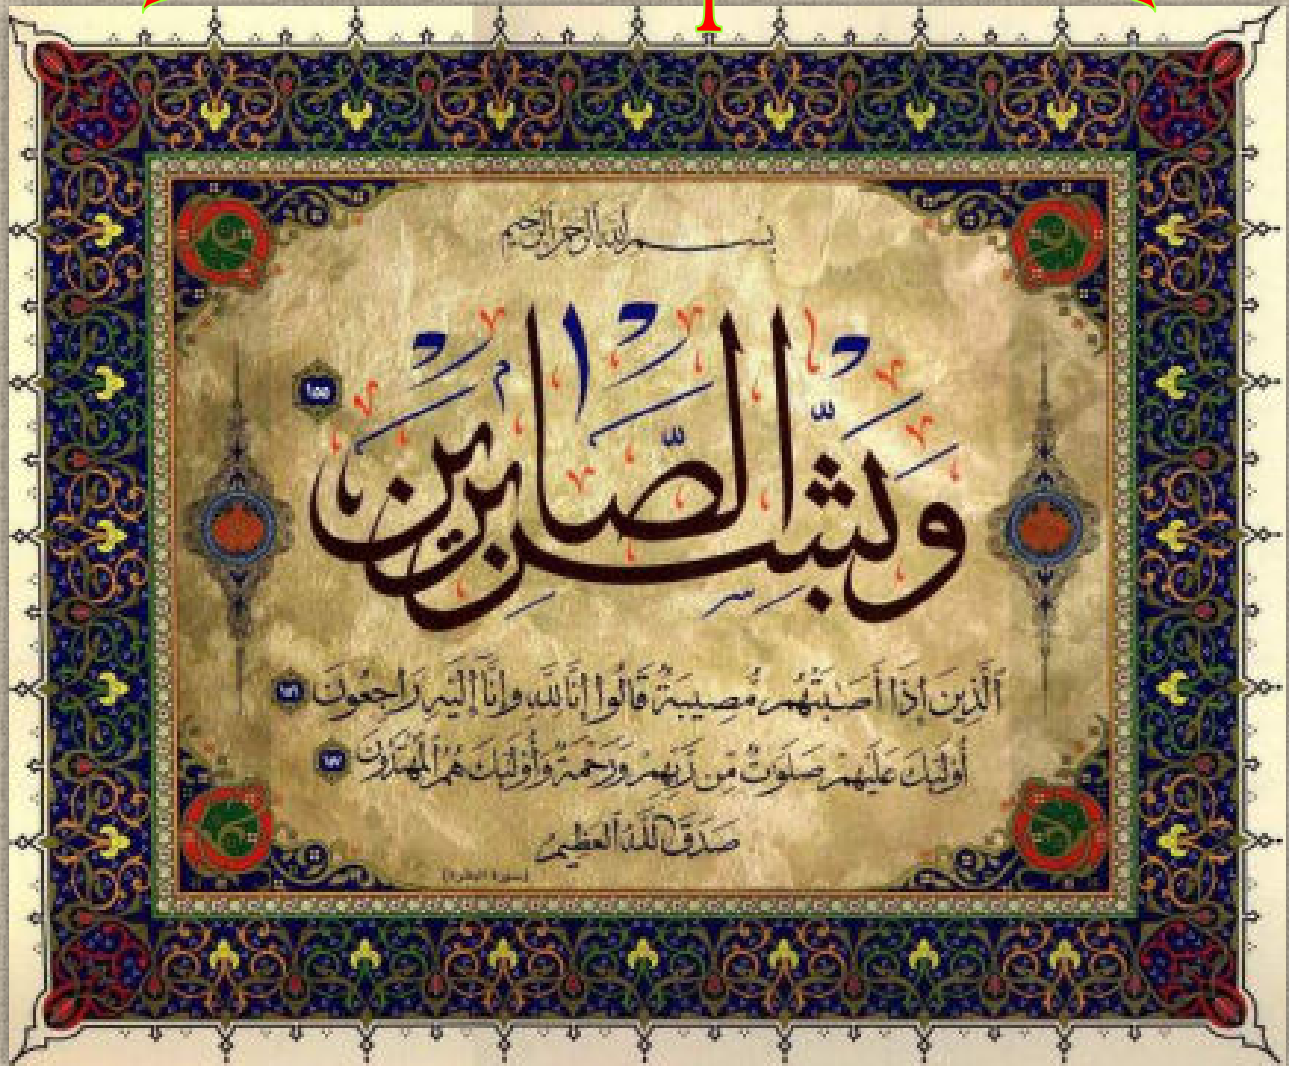 بسم الله الرحمن الرحيم
وَبَشِّرِ الصَّابِرِينَ ١٥٥
ٱلَّذِينَ إِذَا أَصَٰبَتْهُم مُّصِيبَةٌ قَالُوا إِنَّا لِلَّهِ وَإِنَّا إِلَيْهِ رَاجِعُونَ ١٥٦
أُو۟لَٰئِكَ عَلَيْهِمْ صَلَوَٰتٌ مِّن رَّبِّهِمْ وَرَحْمَةٌ وَأُو۟لَٰئِكَ هُمُ ٱلْمُهْتَدُونَ ١٥٧
صَدَقَ اللَّهُ العَظِيم
(سورة البقرة)